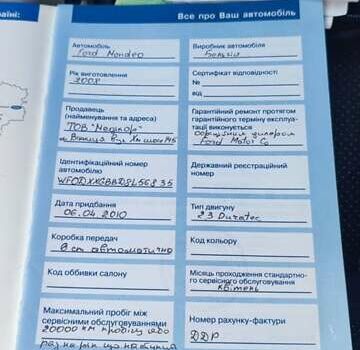 їні:
Все про Ваш автомобіль
Автомобіль
Ford Mondeo
Виробник автомобіля
Бельгія
Рік виготовлення
2008
Сертифікат відповідності
№
від
Продавець
(найменування та адреса)
ТОВ "Медікор"
м. Вінниця вул.
Гарантійний ремонт протягом
гарантійного терміну експлуа-
тації виконується
офіційним дилером
Ford Motor Co
Ідентифікаційний номер
автомобілю
Державний реєстраційний
номер
Дата придбання
06.04.2010
Тип двигуну
2.3 Duratec
Коробка передач
6 ст автоматична
Код кольору
Код оббивки салону
Місяць проходження стандартно-
го сервісного обслуговування
квітень
Максимальний пробіг між
сервісними обслуговуваннями
20000 км пробігу або
раз на рік що
Номер рахунку-фактури
DDP